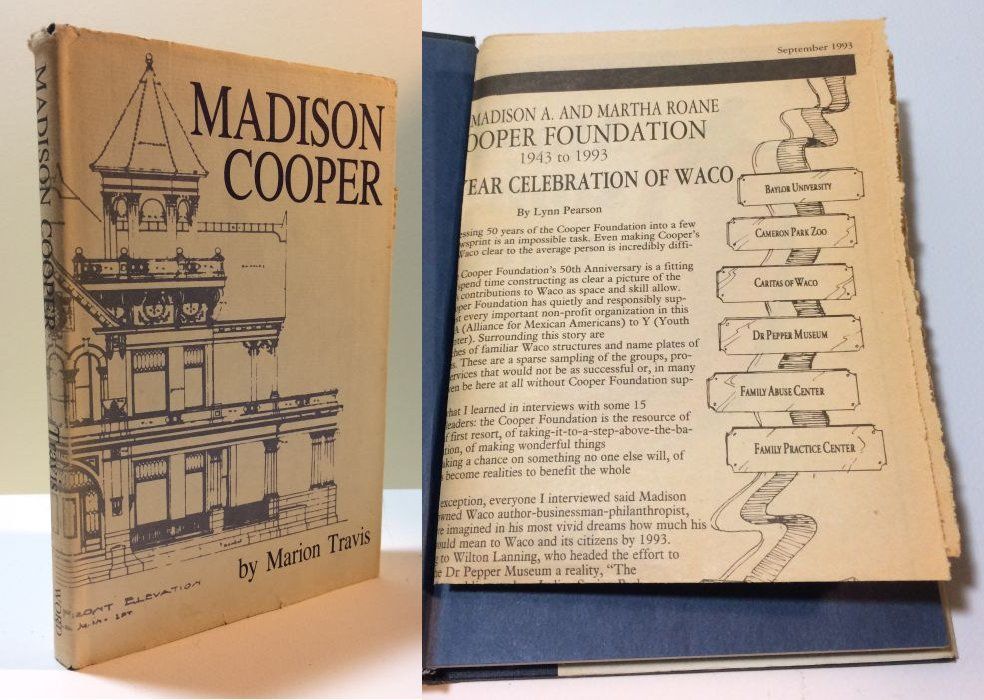 MADISON
COOPER
by Marion Travis
FRONT ELEVATION
MADISON COOPER
WORD
September 1993
MADISON A. AND MARTHA ROANE
OOPER FOUNDATION
1943 to 1993
YEAR CELEBRATION OF WACO
By Lynn Pearson
essing 50 years of the Cooper Foundation into a few
wsprint is an impossible task. Even making Cooper's
Waco clear to the average person is incredibly diffi-
Cooper Foundation's 50th Anniversary is a fitting
spend time constructing as clear a picture of the
contributions to Waco as space and skill allow.
per Foundation has quietly and responsibly sup-
st every important non-profit organization in this
A (Alliance for Mexican Americans) to Y (Youth
nter). Surrounding this story are
hes of familiar Waco structures and name plates of
s. These are a sparse sampling of the groups, pro-
ervices that would not be as successful or, in many
en be here at all without Cooper Foundation sup-
hat I learned in interviews with some 15
eaders: the Cooper Foundation is the resource of
f first resort, of taking-it-to-a-step-above-the-ba-
tion, of making wonderful things
aking a chance on something no one else will, of
become realities to benefit the whole
exception, everyone I interviewed said Madison
owned Waco author-businessman-philanthropist,
ve imagined in his most vivid dreams how much his
ould mean to Waco and its citizens by 1993.
g to Wilton Lanning, who headed the effort to
e Dr Pepper Museum a reality, "The
BAYLOR UNIVERSITY
CAMERON PARK ZOO
CARITAS OF WACO
DR PEPPER MUSEUM
FAMILY ABUSE CENTER
FAMILY PRACTICE CENTER